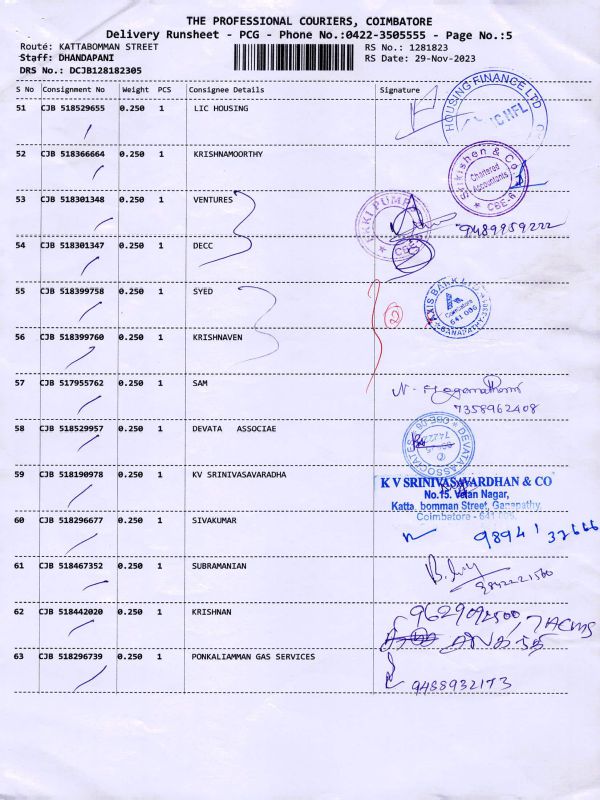 THE PROFESSIONAL COURIERS, COIMBATORE
Delivery Runsheet - PCG - Phone No.:0422-3505555 - Page No.:5
Route: KATTABOMMAN STREET RS No.: 1281823
Staff: DHANDAPANI RS Date: 29-Nov-2023
DRS No.: DCJB128182305
S No Consignment No Weight PCS Consignee Details Signature
51 CJB 518529655 0.250 1 LIC HOUSING
HOUSING FINANCE LTD
52 CJB 518366664 0.250 1 KRISHNAMOORTHY
Srikishen & Co
Chartered
Accountants
CBE-6
53 CJB 518301348 0.250 1 VENTURES
9489959222
54 CJB 518301347 0.250 1 DECC
55 CJB 518399758 0.250 1 SYED
AXIS BANK
Coimbatore
641 006
GANAPATHY
56 CJB 518399760 0.250 1 KRISHNAVEN
57 CJB 517955762 0.250 1 SAM
7358962408
58 CJB 518529957 0.250 1 DEVATA ASSOCIAE
DEVATA ASSOCIATES
59 CJB 518190978 0.250 1 KV SRINIVASAVARADHA
K V SRINIVASAVARDHAN & CO
No.15. Velan Nagar,
Katta. bomman Street, Ganapathy,
Coimbatore - 641 006.
60 CJB 518296677 0.250 1 SIVAKUMAR
61 CJB 518467352 0.250 1 SUBRAMANIAN
62 CJB 518442020 0.250 1 KRISHNAN
9629092500
63 CJB 518296739 0.250 1 PONKALIAMMAN GAS SERVICES
9488932173